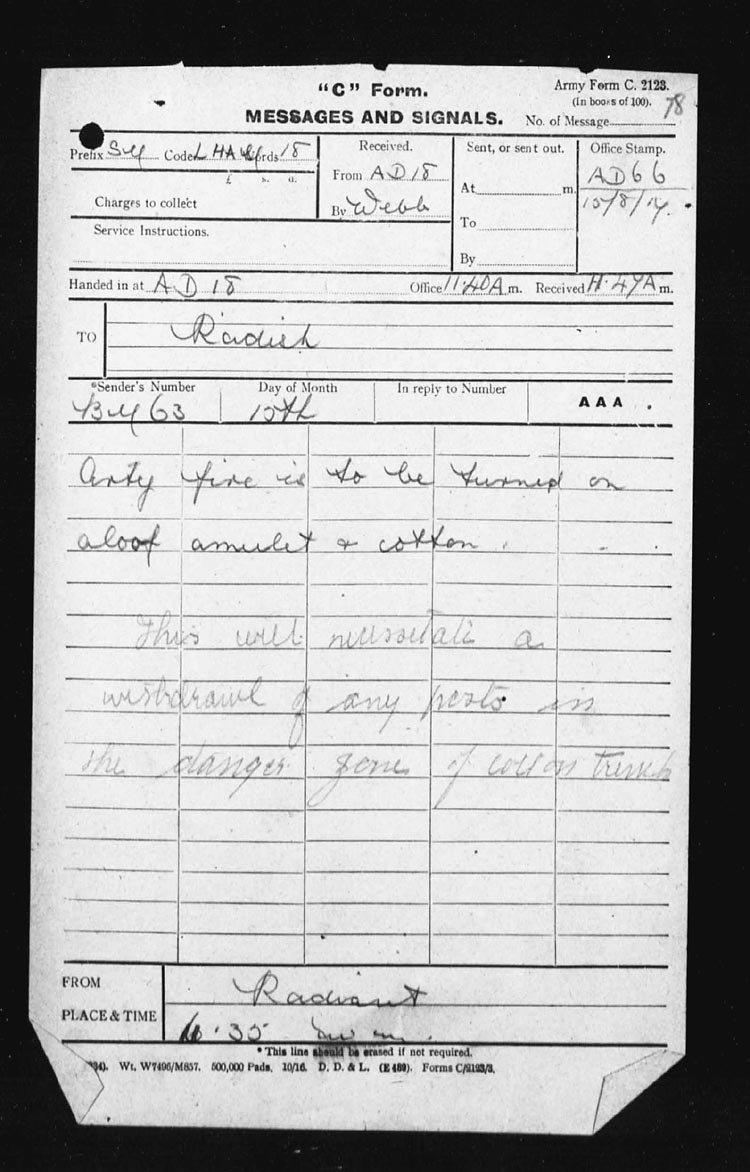 "C" Form.
Army Form C. 2123.
(In books of 100).
MESSAGES AND SIGNALS.
No. of Message 78
Prefix SM Code LHA Words 18
£ s. d.
Charges to collect
Service Instructions.
Received.
From AD18
By Webb
Sent, or sent out.
At m.
To
By
Office Stamp.
AD66
15/8/17.
Handed in at AD 18 Office 11.40A m. Received 11.47A m.
TO Radish
*Sender's Number
BM 63
Day of Month
15th
In reply to Number
AAA .
Arty fire is to be turned on
aloof amulet & cotton .
This will nessetate a
withdrawl of any posts in
the danger zone of cotton trench
FROM Radiant
PLACE & TIME 11.35
* This line should be erased if not required.
Wt. W7496/M857. 500,000 Pads. 10/16. D. D. & L. (E 489). Forms C/2123/3.